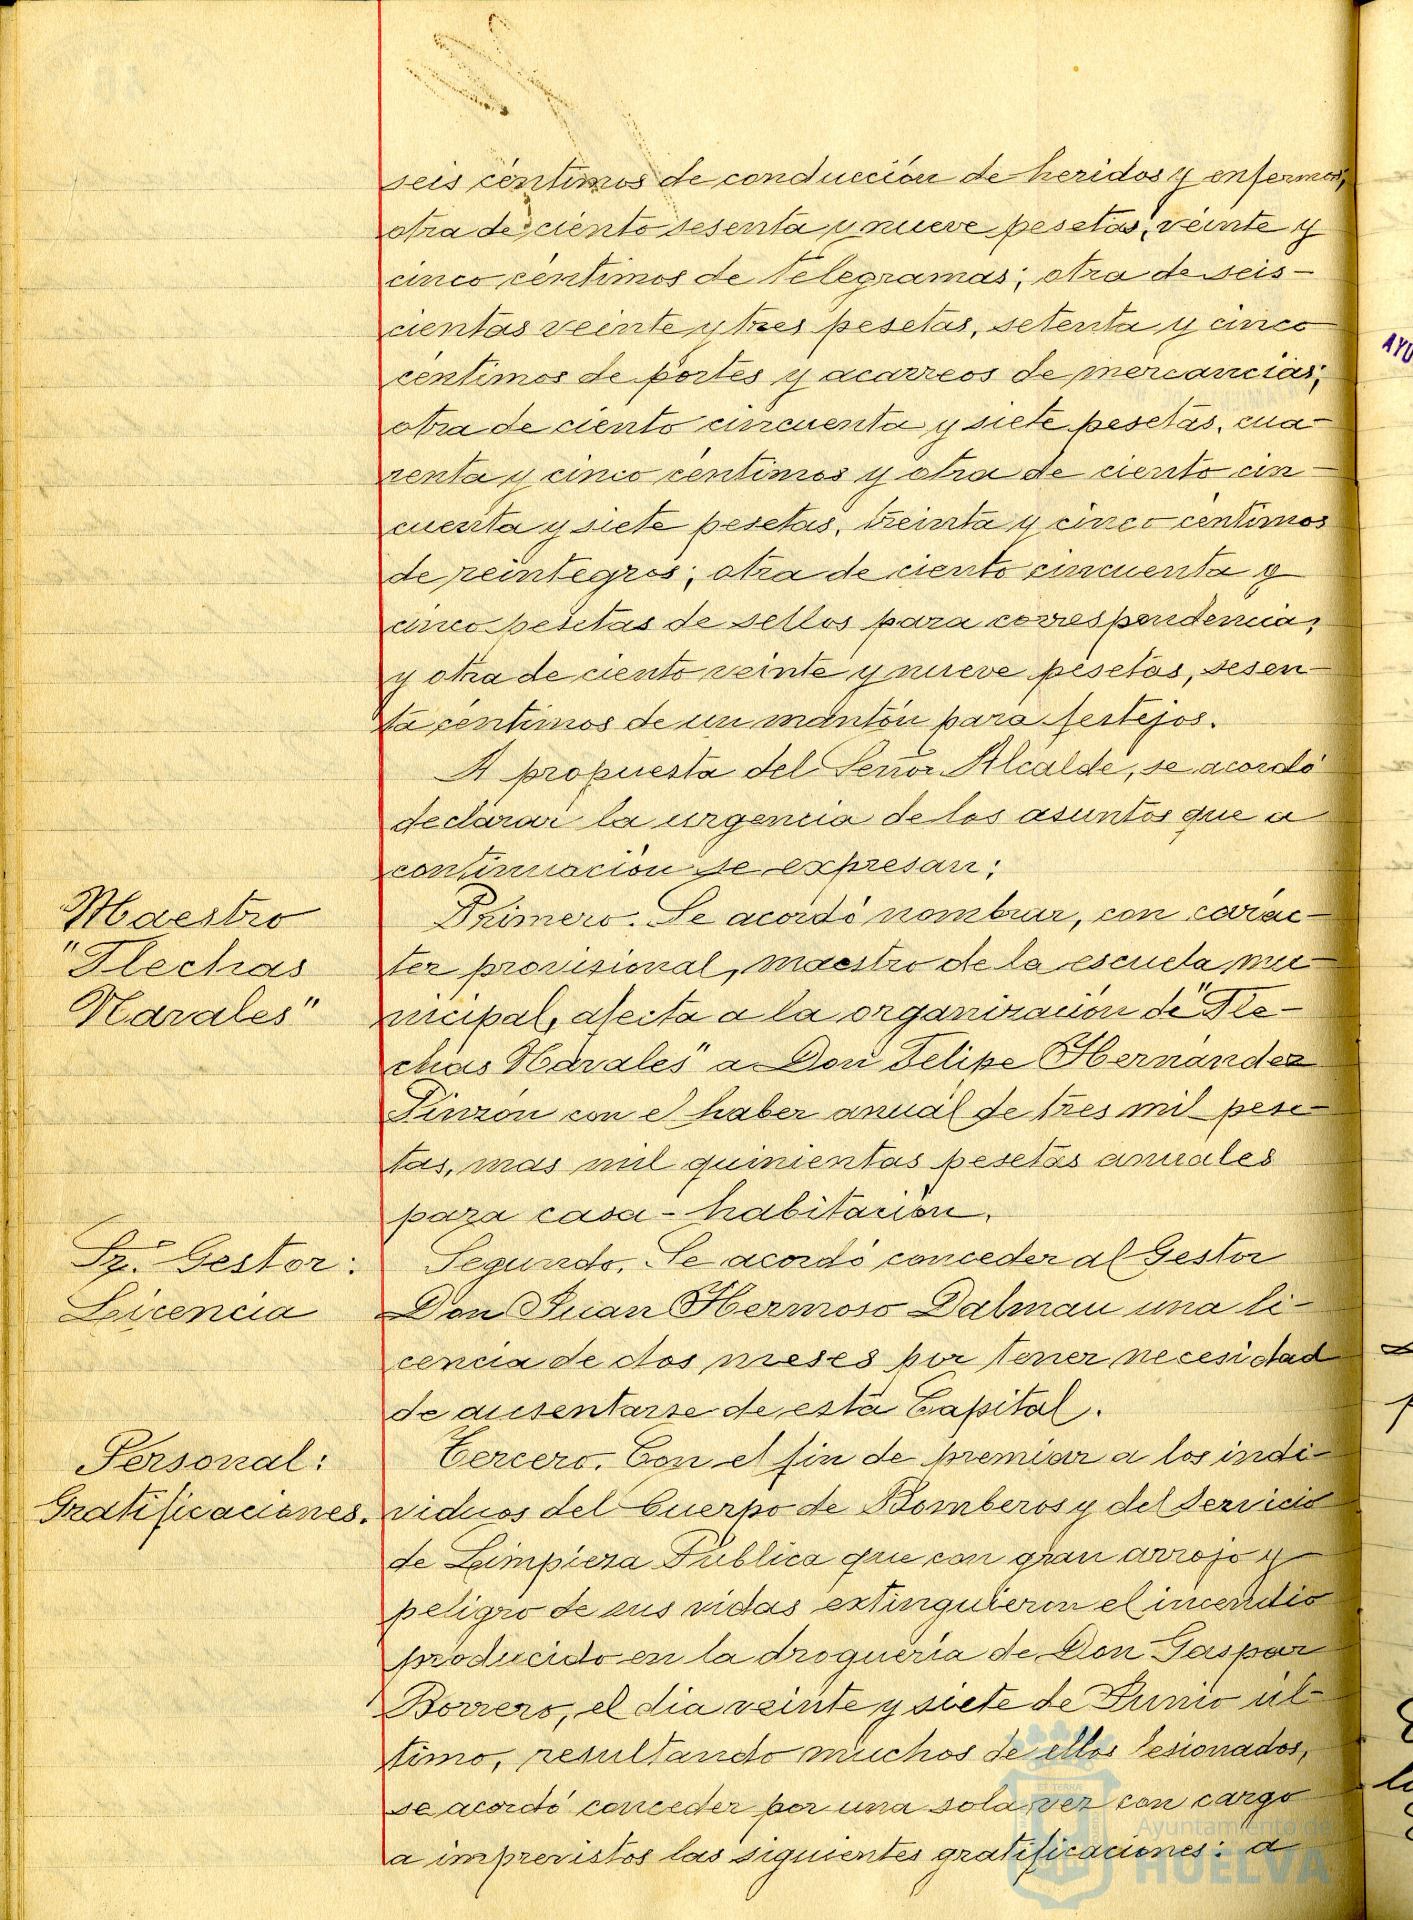 seis céntimos de conducción de heridos y enfermos;
otra de ciento sesenta y nueve pesetas, veinte y
cinco céntimos de telegramas; otra de seis-
cientas veinte y tres pesetas, setenta y cinco
céntimos de portes y acarreos de mercancias;
otra de ciento cincuenta y siete pesetas, cua-
renta y cinco céntimos y otra de ciento cin-
cuenta y siete pesetas, treinta y cinco céntimos
de reintegros; otra de ciento cincuenta y
cinco pesetas de sellos para correspondencia;
y otra de ciento veinte y nueve pesetas, sesen-
ta céntimos de un mantón para festejos.
A propuesta del Señor Alcalde, se acordó
declarar la urgencia de los asuntos que a
continuación se expresan:
Maestro
"Flechas
Navales"
Primero. Se acordó nombrar, con carác-
ter provisional, maestro de la escuela mu-
nicipal, afecta a la organización de "Fle-
chas Navales" a Don Felipe Hernández
Pinzón con el haber anual de tres mil pese-
tas, mas mil quinientas pesetas anuales
para casa-habitación.
Sr. Gestor:
Licencia
Segundo. Se acordó conceder al Gestor
Don Juan Hermoso Dalmau una li-
cencia de dos meses por tener necesidad
de ausentarse de esta Capital.
Personal:
Gratificaciones.
Tercero. Con el fin de premiar a los indi-
viduos del Cuerpo de Bomberos y del Servicio
de Limpieza Pública que con gran arrojo y
peligro de sus vidas extinguieron el incendio
producido en la droguería de Don Gaspar
Borrero, el dia veinte y siete de Junio úl-
timo, resultando muchos de ellos lesionados,
se acordó conceder por una sola vez con cargo
a imprevistos las siguientes gratificaciones: a
Ayuntamiento de
HUELVA
AYU